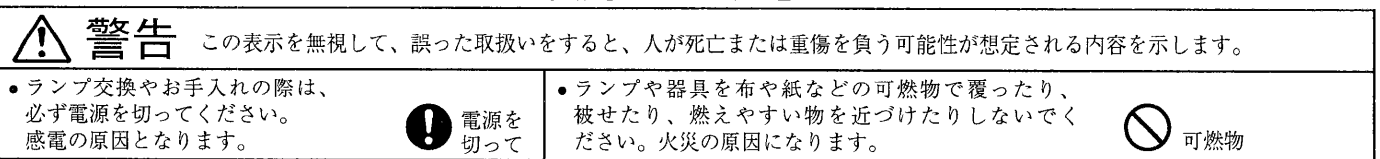 警告 この表示を無視して、誤った取扱いをすると、人が死亡または重傷を負う可能性が想定される内容を示します。
•ランプ交換やお手入れの際は、
必ず電源を切ってください。
感電の原因となります。
電源を
切って
•ランプや器具を布や紙などの可燃物で覆ったり、
被せたり、燃えやすい物を近づけたりしないでく
ださい。火災の原因になります。
可燃物